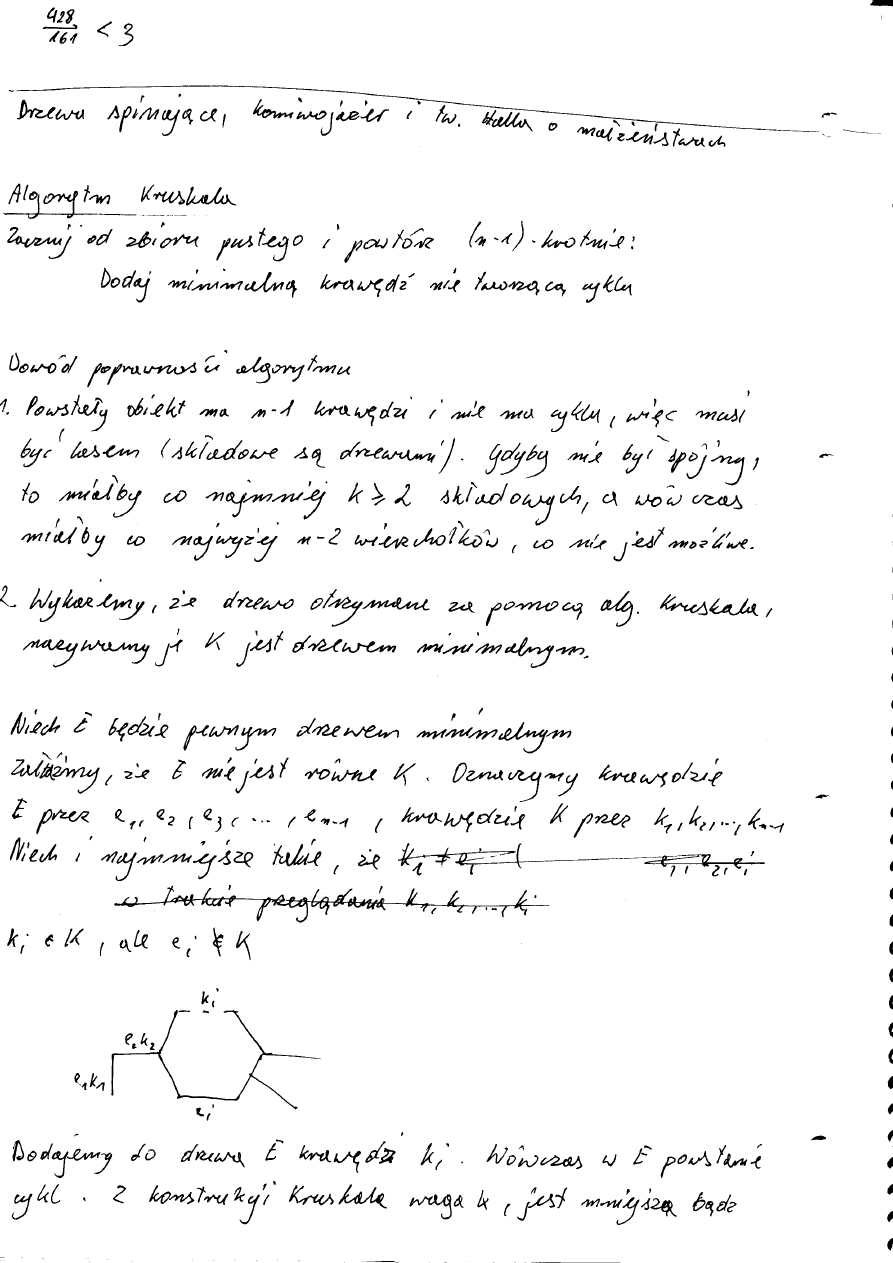 428/161 < 3
Drzewa spinające, komiwojażer i tw. Halla o małżeństwach
Algorytm Kruskala
Zacznij od zbioru pustego i powtórz (n-1)-krotnie:
Dodaj minimalną krawędź nie tworzącą cyklu
Dowód poprawności algorytmu
1. Powstały obiekt ma n-1 krawędzi i nie ma cyklu, więc musi
być lasem (składowe są drzewami). Gdyby nie był spójny,
to miałby co najmniej k ≥ 2 składowych, a wówczas
miałby co najwyżej n-2 wierzchołków, co nie jest możliwe.
2. Wykażemy, że drzewo otrzymane za pomocą alg. Kruskala,
nazywamy je K jest drzewem minimalnym.
Niech E będzie pewnym drzewem minimalnym
Załóżmy, że E nie jest równe K. Oznaczymy krawędzie
E przez e₁, e₂, e₃, ..., eₙ₋₁, krawędzie K przez k₁, k₂, ..., kₙ₋₁
Niech i najmniejsze takie, że kᵢ ≠ eᵢ ( e₁, e₂, eᵢ
w trakcie przeglądania k₁, k₂, ..., kᵢ
kᵢ ∈ K, ale eᵢ ∉ K
kᵢ
e₂k₂
e₁k₁
eᵢ
Dodajemy do drzewa E krawędź kᵢ. Wówczas w E powstanie
cykl. Z konstrukcji Kruskala waga kᵢ jest mniejsza bądz